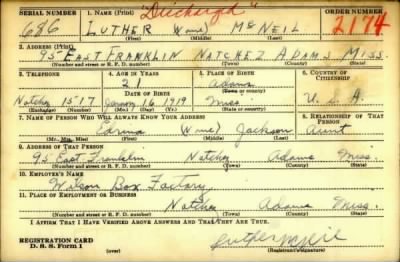 SERIAL NUMBER 1. NAME (Print) "Discharged" ORDER NUMBER
686 LUTHER (none) McNEIL 2174
2. ADDRESS (Print)
95 EAST FRANKLIN NATCHEZ ADAMS MISS.
(Number and street or R. F. D. number) (Town) (County) (State)
3. TELEPHONE 4. AGE IN YEARS 5. PLACE OF BIRTH 6. COUNTRY OF CITIZENSHIP
21 Adams
DATE OF BIRTH (Town or county)
Natchez 1517 January 16 1919 Miss U.S.A.
(Exchange) (Number) (Mo.) (Day) (Yr.) (State or country)
7. NAME OF PERSON WHO WILL ALWAYS KNOW YOUR ADDRESS 8. RELATIONSHIP OF THAT PERSON
(none) Jackson Aunt
(Mr., Mrs., Miss)
9. ADDRESS OF THAT PERSON
95 East Franklin Natchez Adams Miss.
(Number and street or R. F. D. number) (Town) (County) (State)
10. EMPLOYER'S NAME
Wilson Box Factory
11. PLACE OF EMPLOYMENT OR BUSINESS
Natchez Adams Miss.
(Number and street or R. F. D. number) (Town) (County) (State)
I AFFIRM THAT I HAVE VERIFIED ABOVE ANSWERS AND THAT THEY ARE TRUE.
REGISTRATION CARD
D. S. S. Form 1
Luther McNeil
(Registrant's signature)